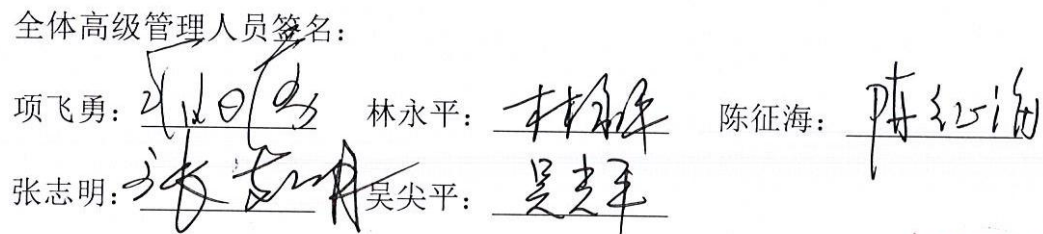 全体高级管理人员签名：
项飞勇： 项飞勇 林永平： 林永平 陈征海： 陈征海
张志明： 张志明 吴尖平： 吴尖平